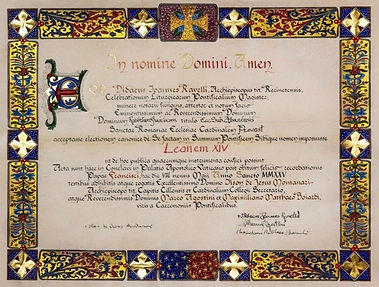 In nomine Domini. Amen
Ego Didacus Ioannes Ravelli, Archiepiscopus tit. Recinetensis,
Celebrationum Liturgicarum Pontificalium Magister,
munere notarii fungens, attestor et notum facio
Eminentissimum ac Reverendissimum Dominum
Dominum
Sanctae Romanae Ecclesiae Cardinalem Prevost
acceptasse electionem canonice de Se factam in Summum Pontificem Sibique nomen imposuisse
Leonem XIV
ut de hoc publica quaecumque instrumenta confici possint.
Acta sunt haec in Conclavi in Palatio Apostolico Vaticano post obitum felicis recordationis
Papae Francisci, hac die VIII mensis Maii Anno Sancto MMXXV
testibus adhibitis atque rogatis Excellentissimo Domino Ilson de Jesus Montanari
Archiepiscopo tit. Capitis Cillensis et Cardinalium Collegii Secretario,
atque Reverendissimis Dominis Marco Agostini et Maximiliano Matthaeo Boiardi,
viris a Caeremoniis Pontificalibus.